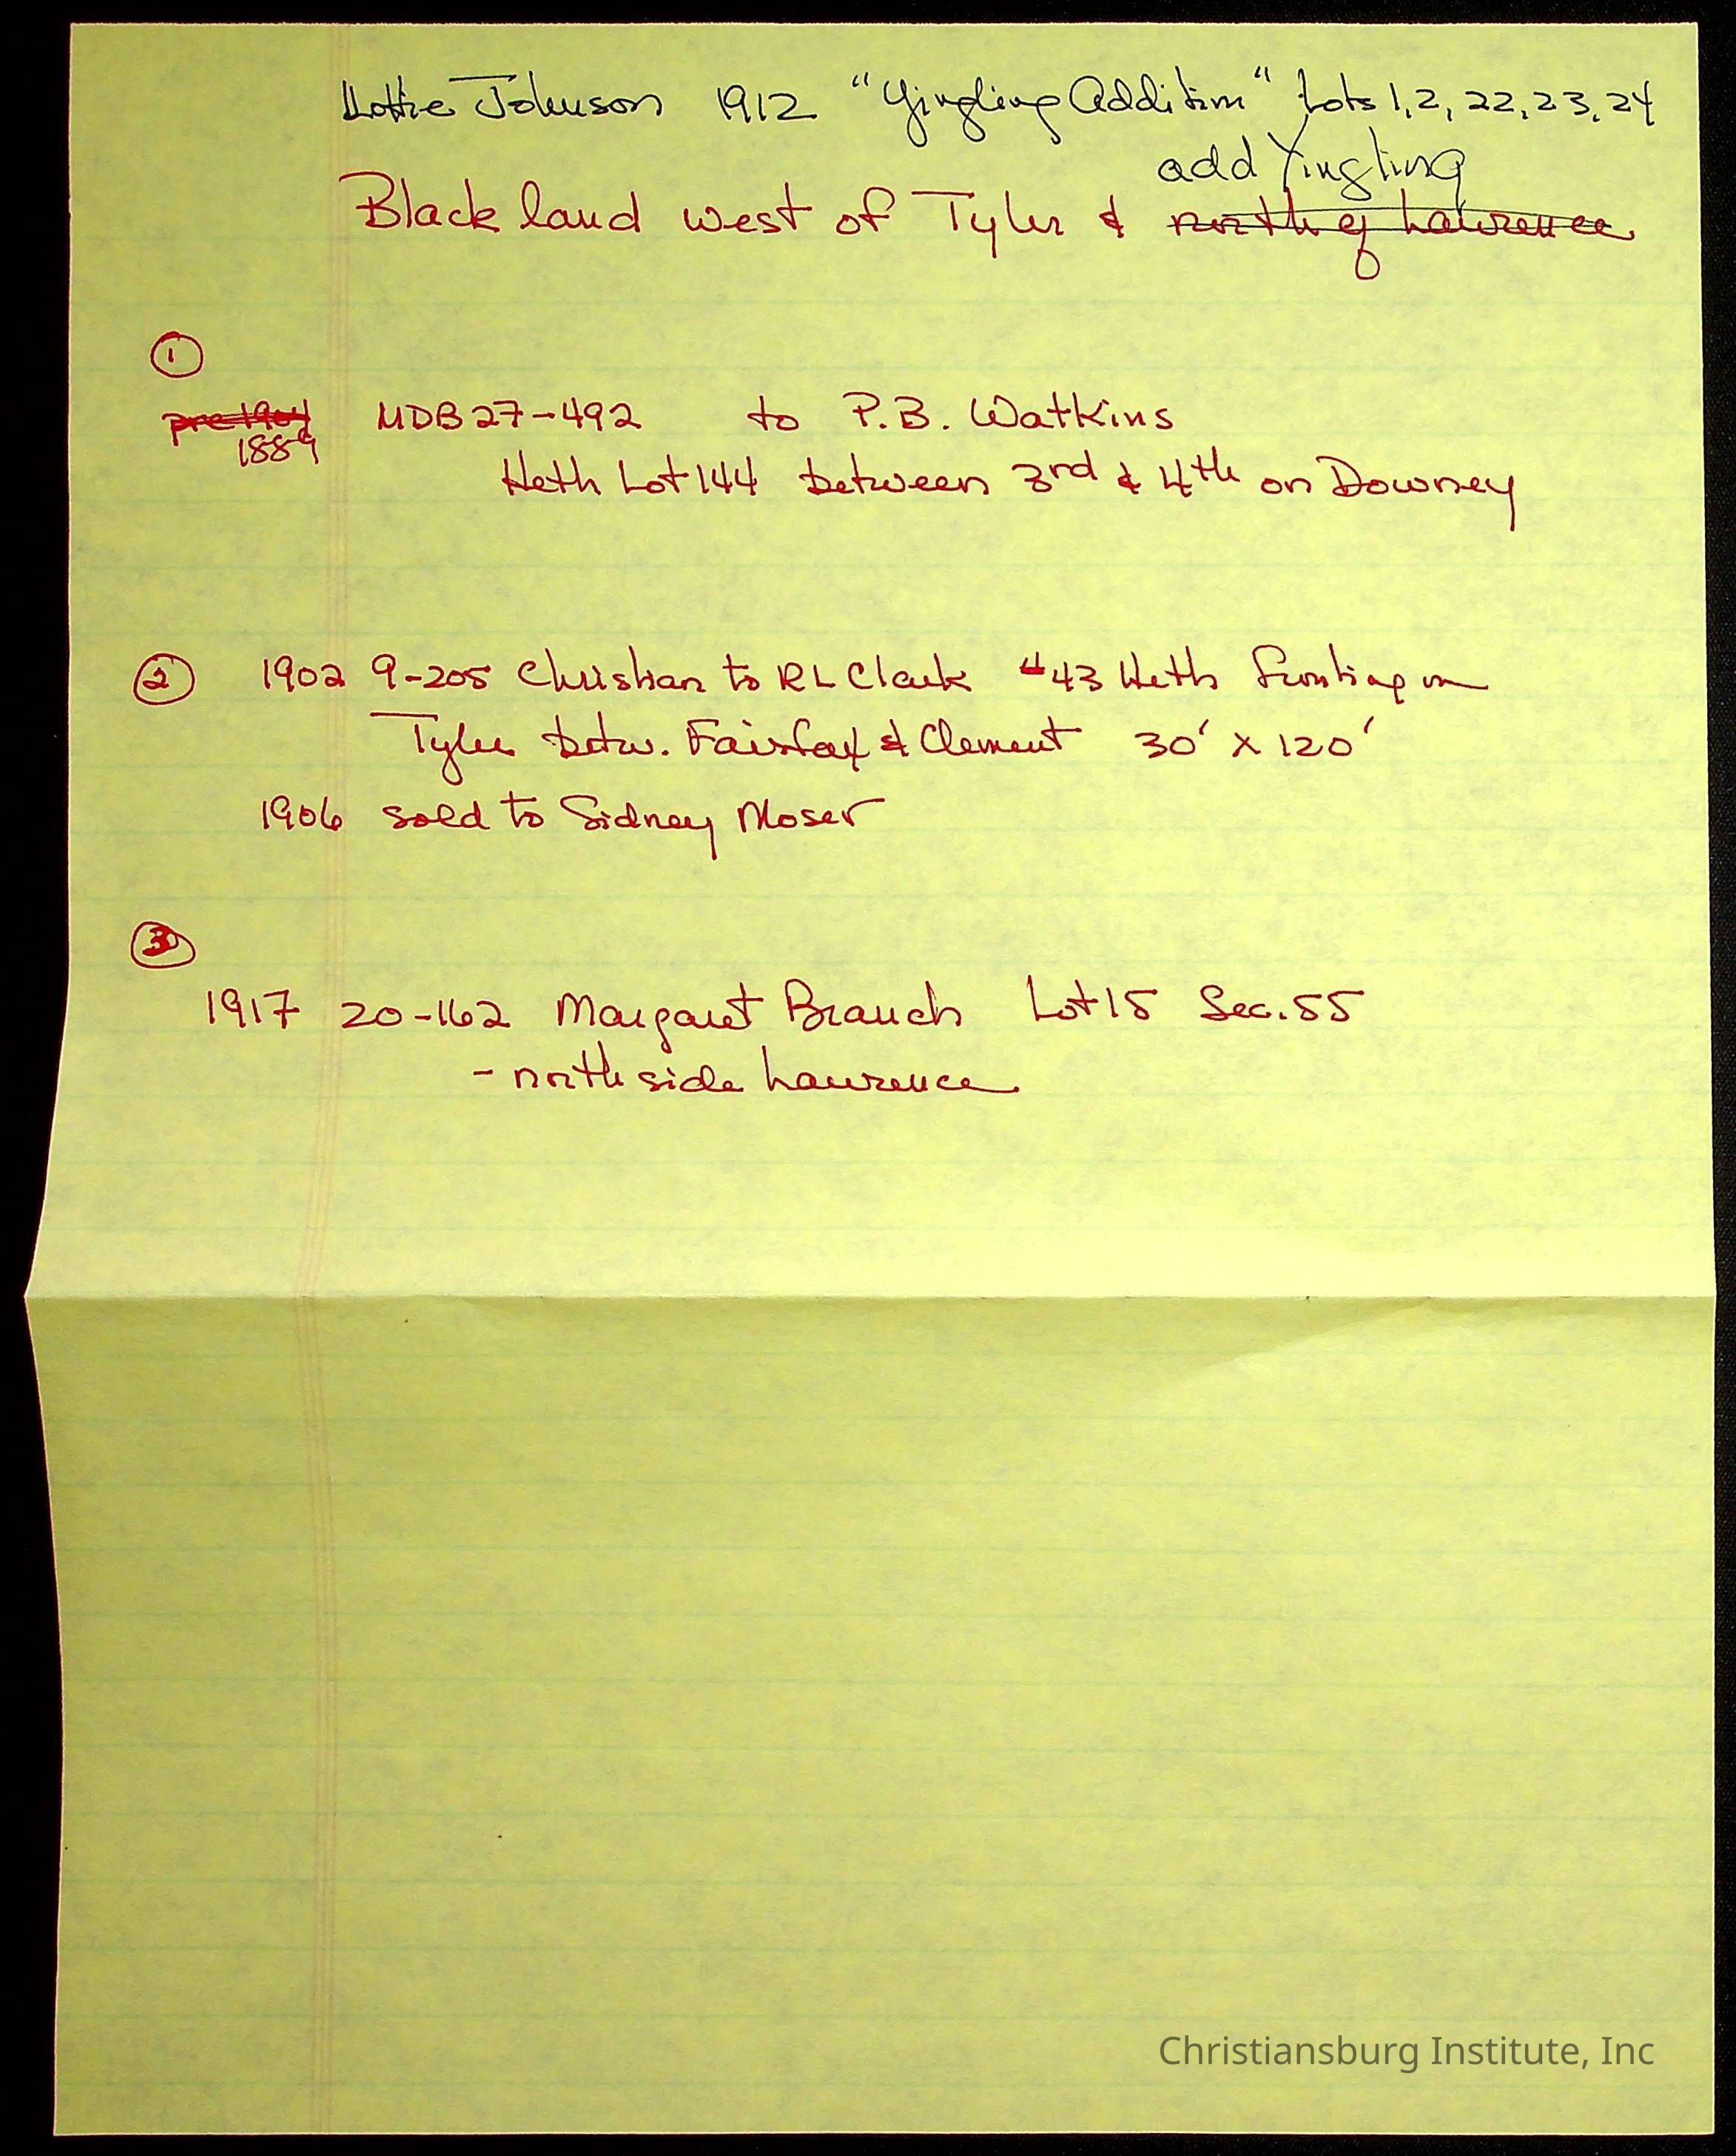 Lottie Johnson 1912 "Yingling Addition" Lots 1, 2, 22, 23, 24
add Yingling
Black land west of Tyler & north of Lawrence
①
pre 1904 MDB 27-492 to P.B. Watkins
1889
Heth Lot 144 between 3rd & 4th on Downey
② 1902 9-205 Christian to RL Clark #43 Heth fronting on
Tyler betw. Fairfax & Clement 30' x 120'
1906 sold to Sidney Moser
③
1917 20-162 Margaret Branch Lot 15 Sec. 55
- north side Lawrence
Christiansburg Institute, Inc